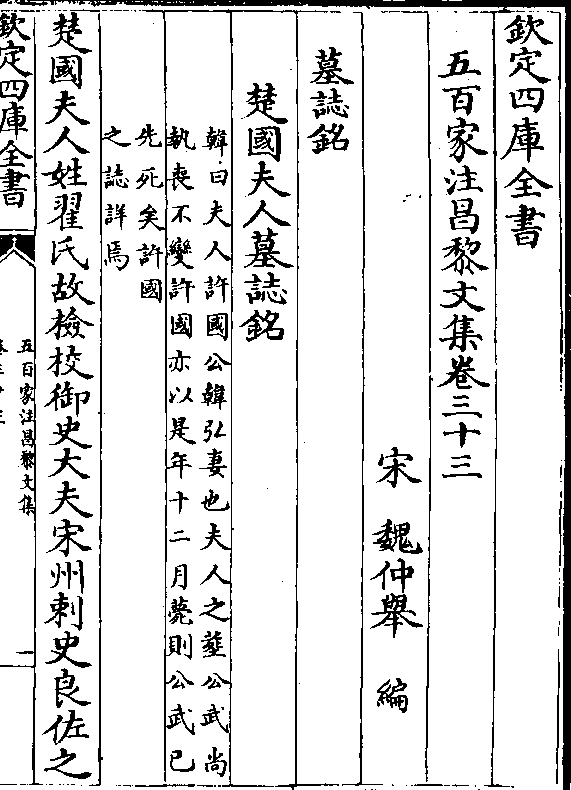 欽定四庫全書
五百家注昌黎文集卷三十三
宋 魏仲舉 編
墓誌銘
楚國夫人墓誌銘
韓曰夫人許國公韓弘妻也夫人之塟公武尚
執喪不變許國亦以是年十二月薨則公武已
先死矣許國
之誌詳焉
楚國夫人姓翟氏故檢校御史大夫宋州刺史良佐之
欽定四庫全書
五百家注昌黎文集
一